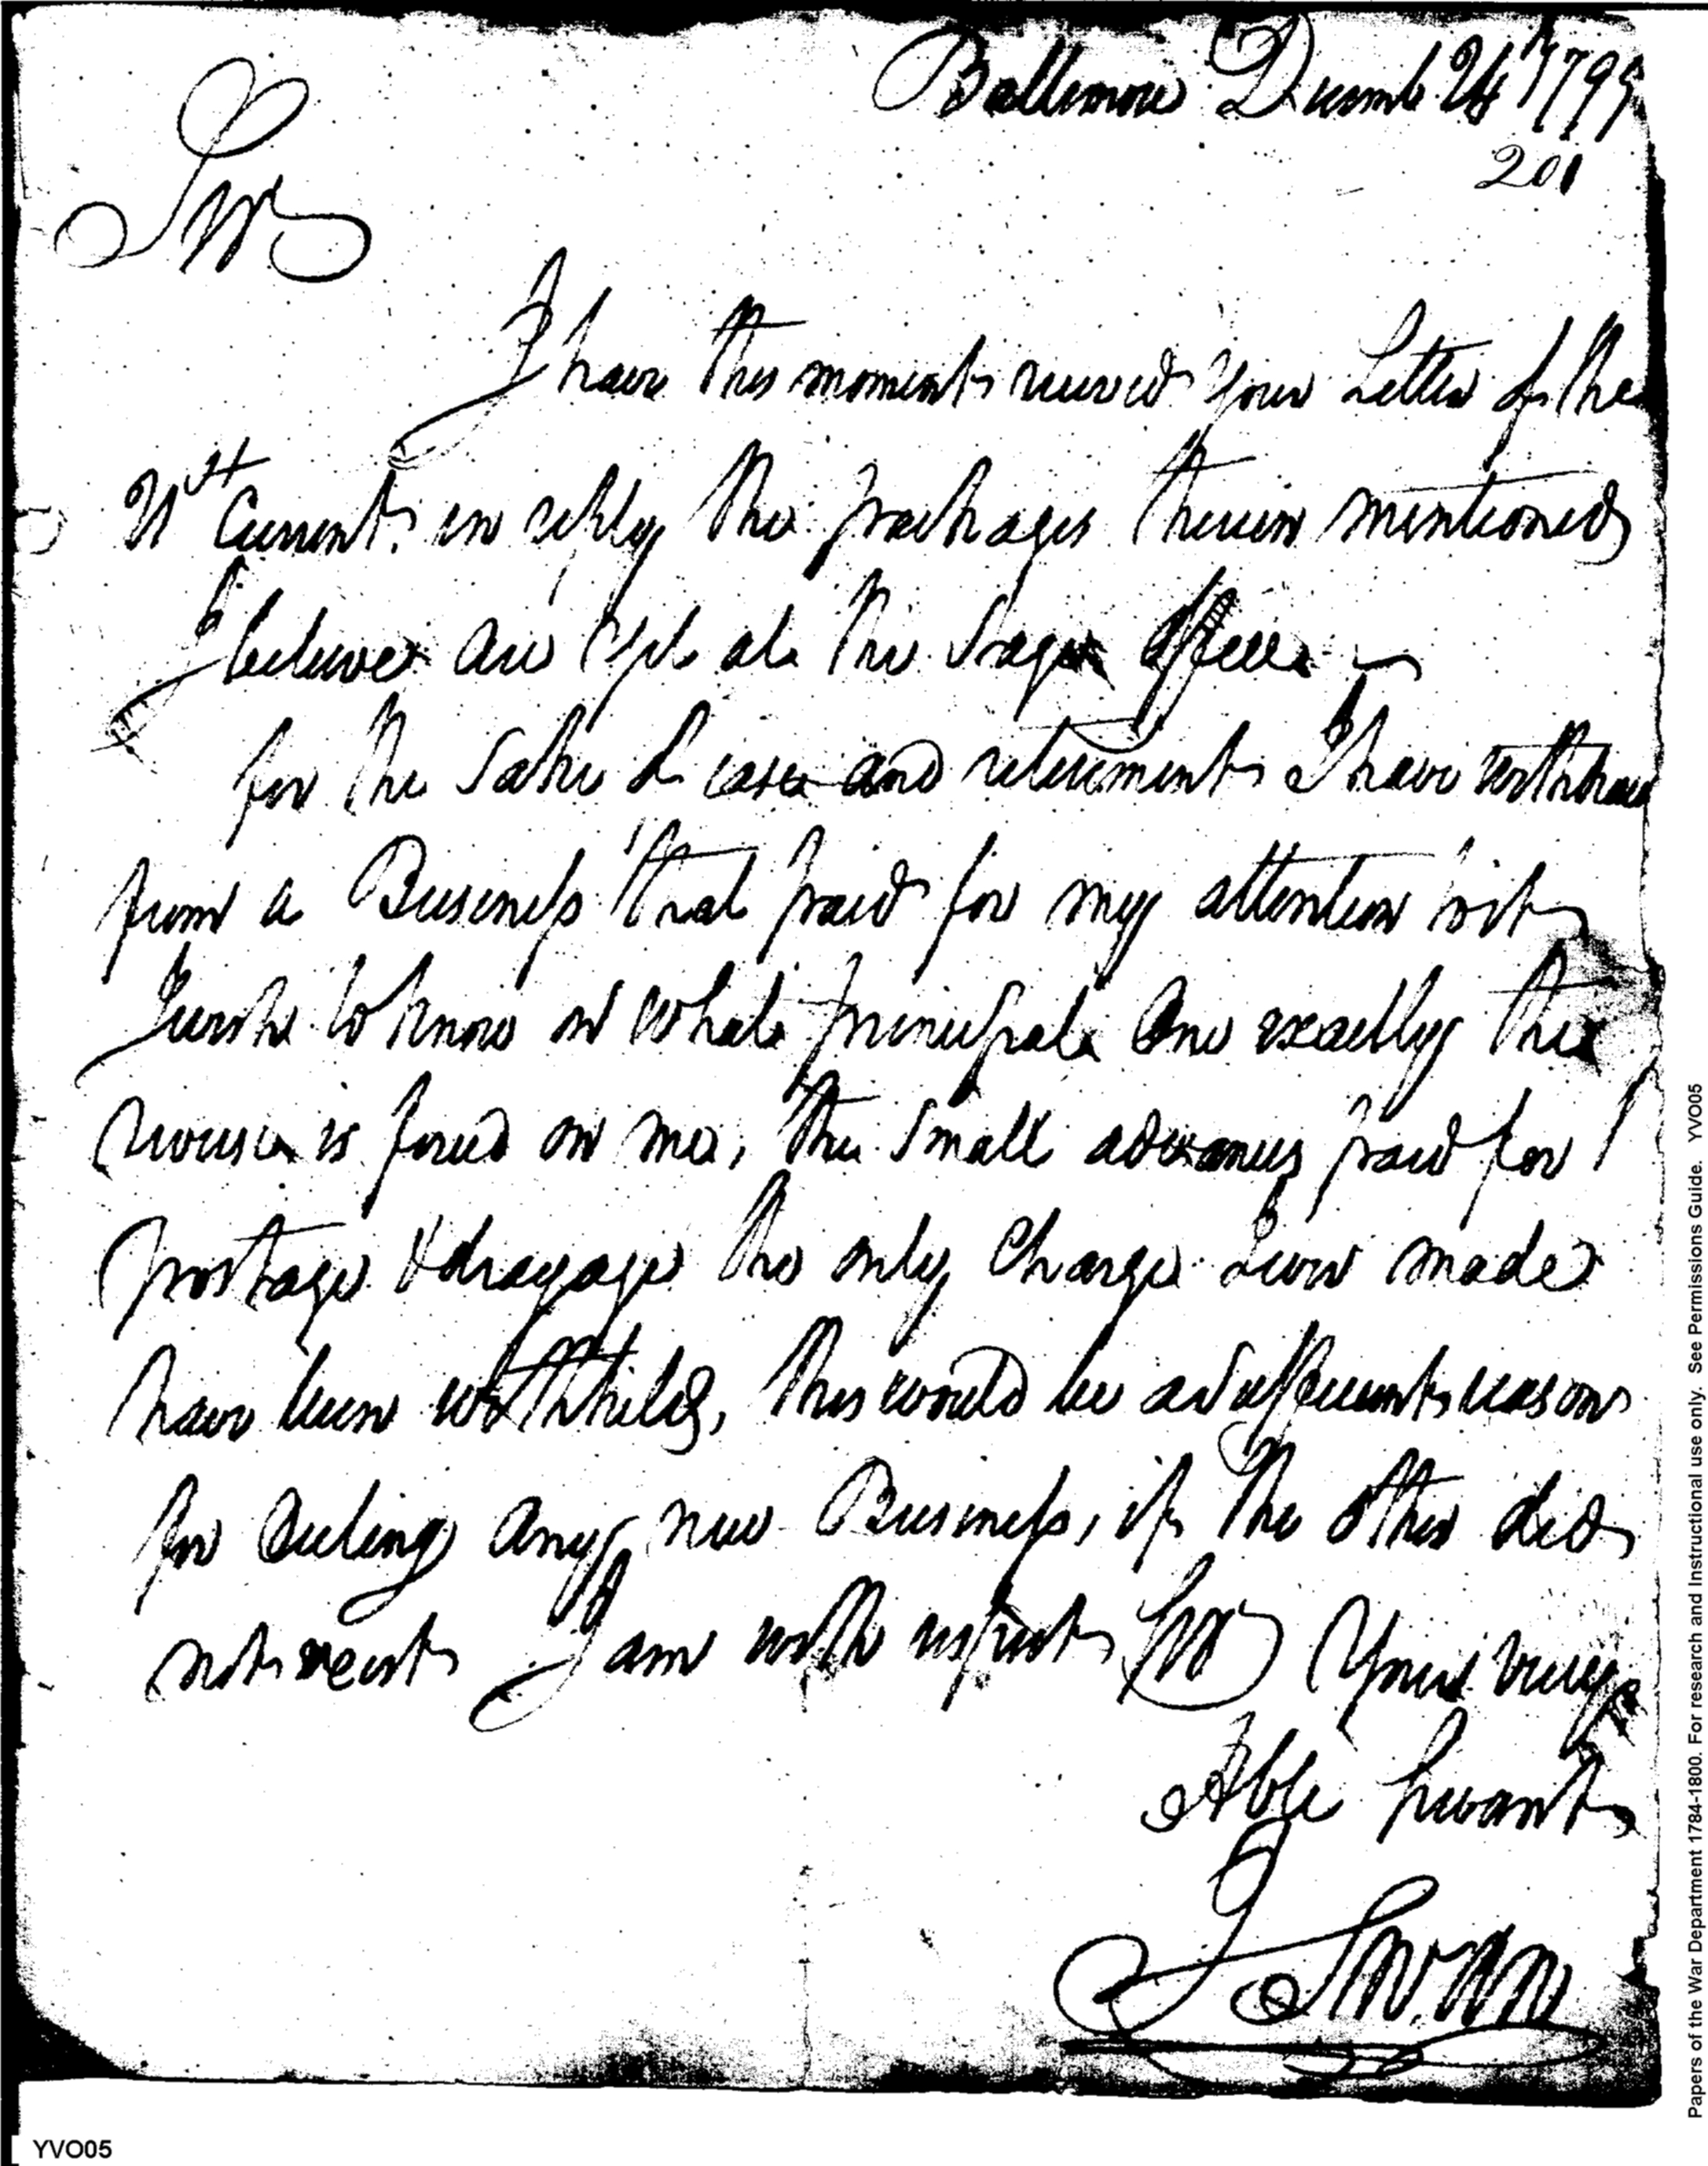 Baltimore Decemb. 24th 1799
201
Sir
I have this moment received your Letter of the
21st Current. in reply the packages therein mentioned
I believe are yet at the Stage Office
for the sake of ease and retirement I have withdrawn
from a Business that paid for my attention to it
I wish to know on what principal One exactly the
reverse is forced on me, the small advances paid for
postage & drayage the only Charge I ever made
have been withheld, this would be a sufficient reason
for declining any new Business, if the other did
not exist I am with respect Sir Your very
Hble Servant
J Swan
Papers of the War Department 1784-1800. For research and instructional use only. See Permissions Guide. YVO05
YVO05